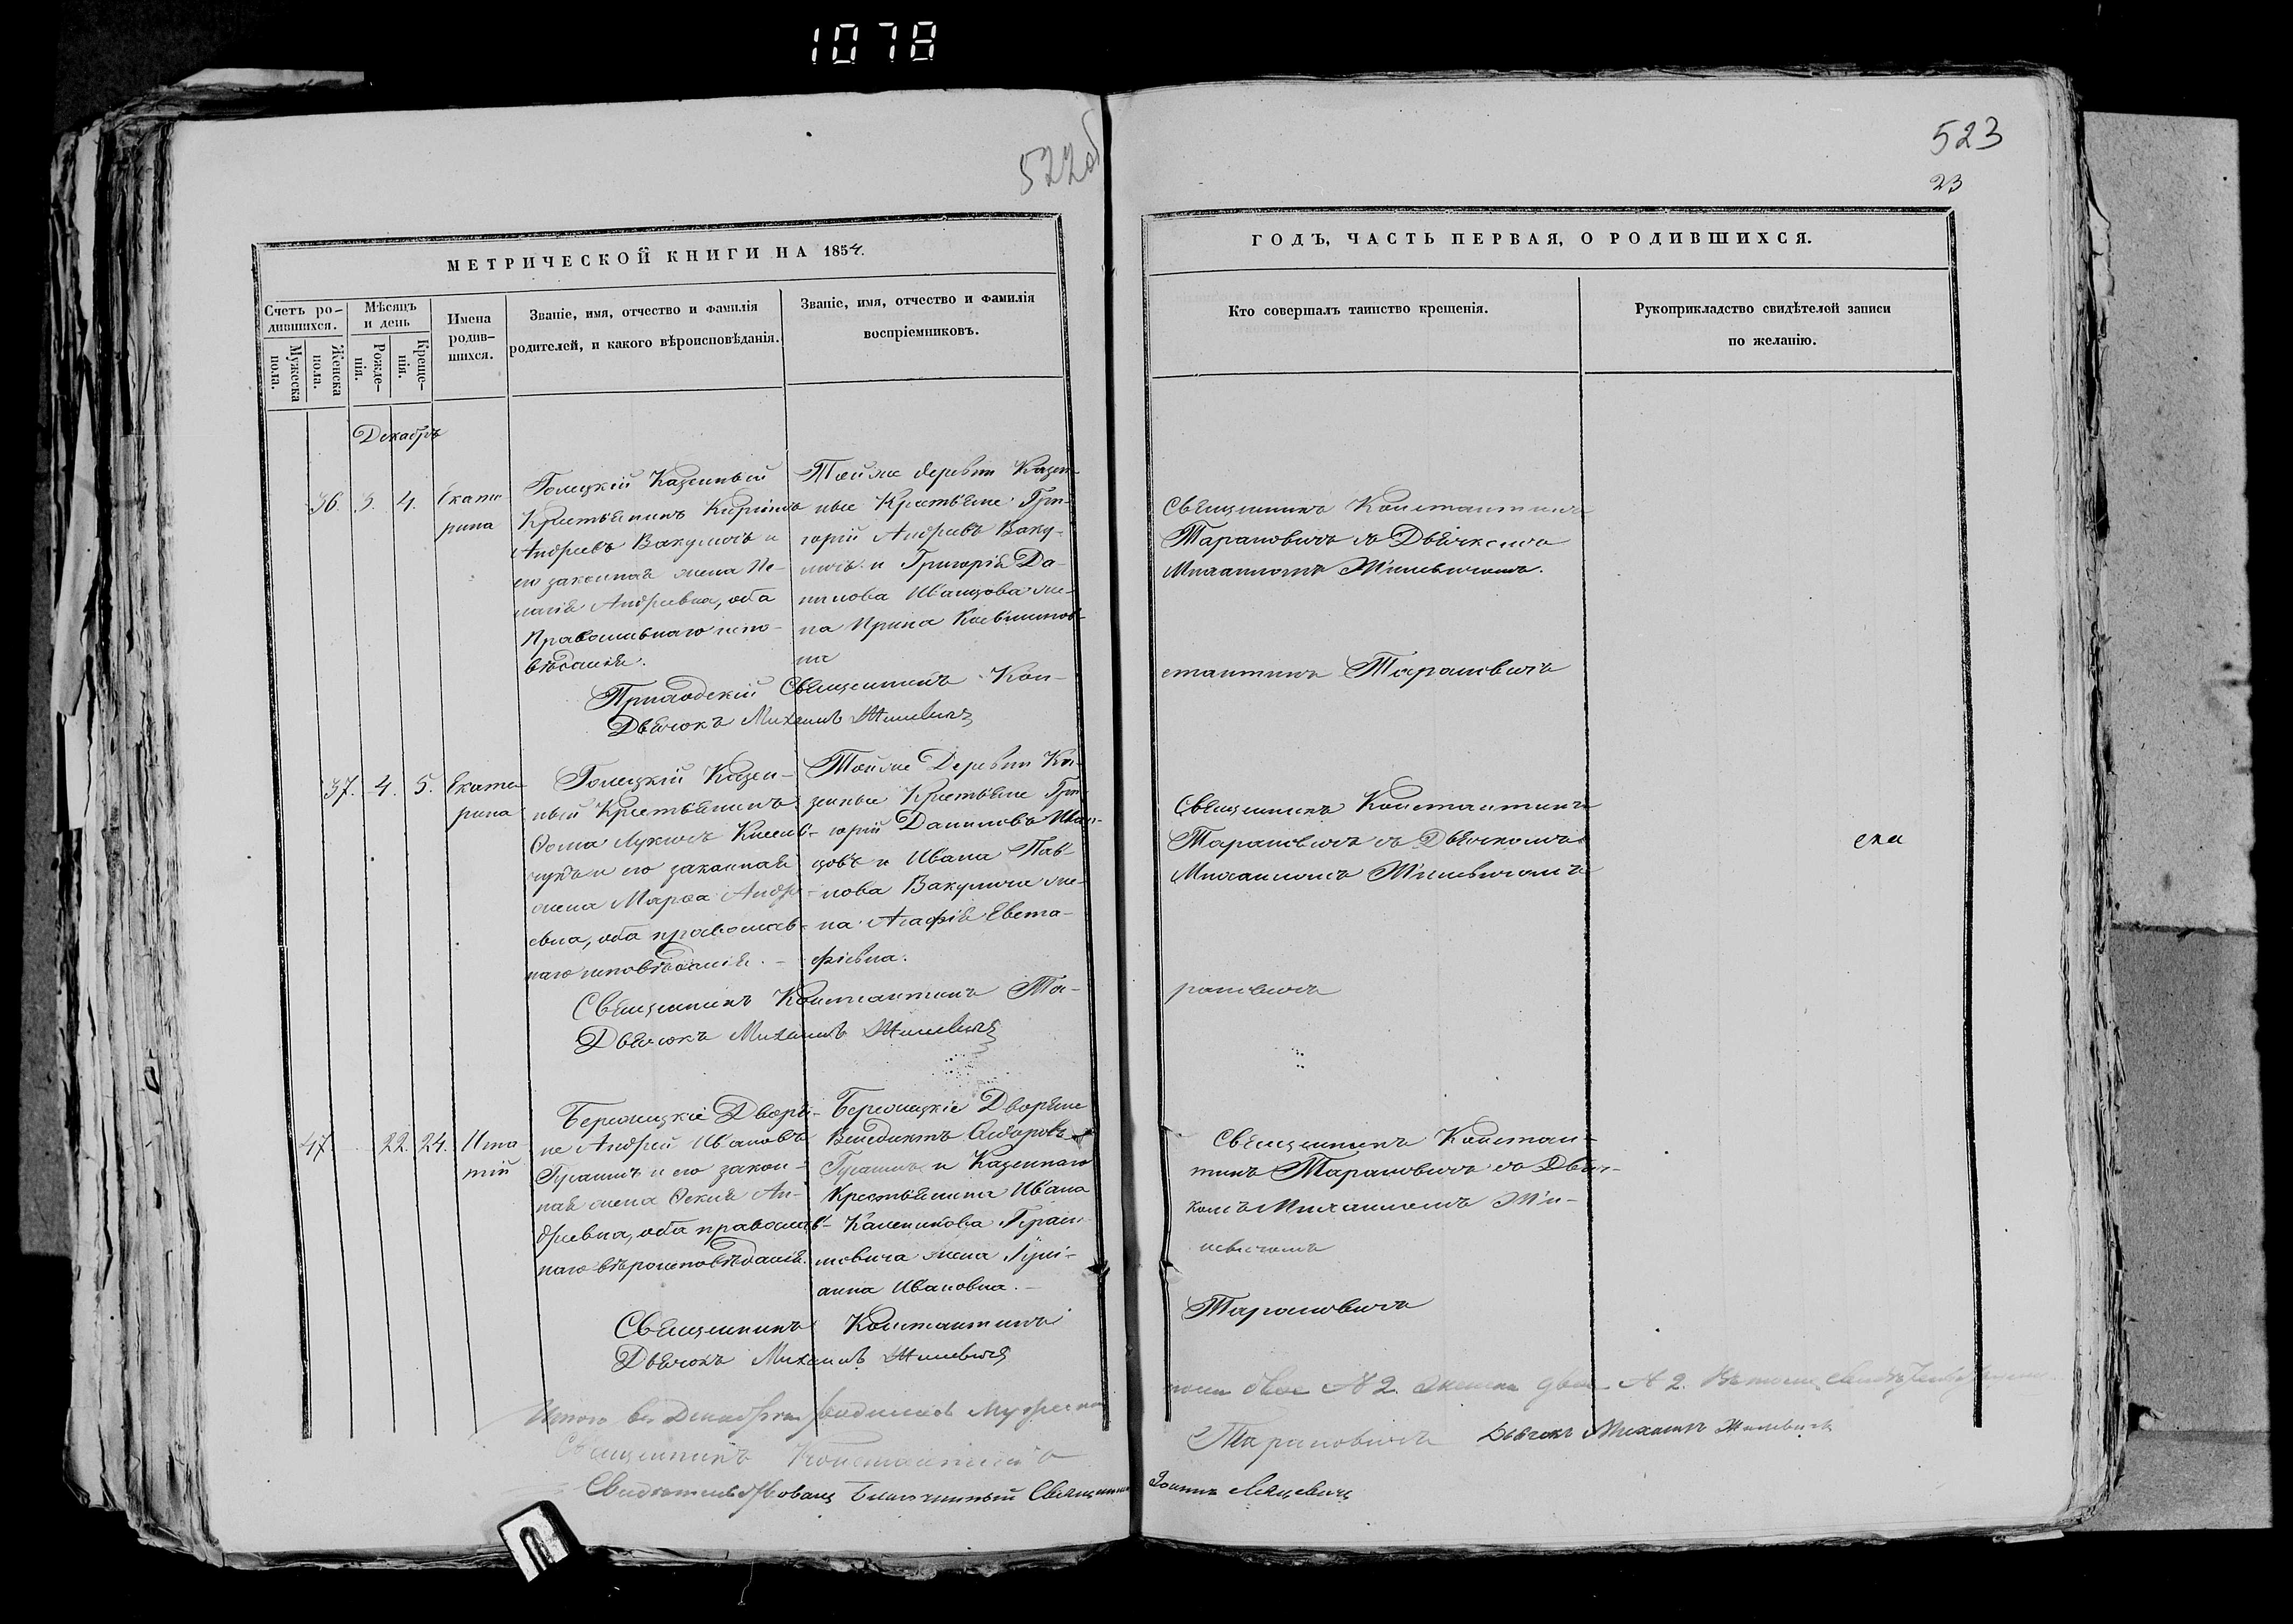 1078
522об
523
23
МЕТРИЧЕСКОЙ КНИГИ НА 1854.
ГОДЪ, ЧАСТЬ ПЕРВАЯ, О РОДИВШИХСЯ.
Счетъ ро-
дившихся.
Мужеска
пола.
Женска
пола.
Мѣсяцъ
и день
Рожде-
нія.
Креще-
нія.
Имена
родив-
шихся.
Званіе, имя, отчество и фамилія
родителей, и какого вѣроисповѣданія.
Званіе, имя, отчество и фамилія
воспріемниковъ.
Кто совершалъ таинство крещенія.
Рукоприкладство свидѣтелей записи
по желанію.
Декабрь
36. 3. 4. Екате
рина
Голецкій Казенный
Крестьянинъ
Андреевъ Вакуличъ и
его законная жена Пе-
лагія Андреевна, оба
Православнаго испо-
вѣданія.
Тойже деревни Казен-
ные Крестьяне Гри-
горій Андреевъ Ваку-
личъ и Григорія Да-
нилова Иванцова же-
на Ирина
на
Священникъ Константинъ
Тарановичъ съ Дьячкомъ
Михаиломъ Жилевичемъ.
Приходскій Священникъ Кон-
стантинъ Тарановичъ
Дьячокъ Михаилъ Жилевичъ
37. 4. 5. Екате
рина
Голецкій Казен-
ный Крестьянинъ
Ѳома Лукичъ
и его законная
жена Марѳа Андре-
евна, оба православ-
наго исповѣданія.
Тойже Деревни Ка-
зенные Крестьяне Гри-
горій Даниловъ Иван-
цовъ и Ивана Пав-
лова Вакулича же-
на Агафія Евста-
фіевна.
Священникъ Константинъ
Тарановичъ съ Дьячкомъ
Михаиломъ Жилевичемъ
Священникъ Константинъ Та-
рановичъ
Дьячокъ Михаилъ Жилевичъ
47 22. 24. Игна
тій
Бережецкіе Дворя-
не Андрей Ивановъ
и его закон-
ная жена Ѳекла Ан-
дреевна, оба православ-
наго вѣроисповѣданія.
Бережецкіе Дворяне
Венедиктъ Сидоровъ
и Казеннаго
Крестьянина Ивана
жена Іулі-
анна Ивановна.
Священникъ Констан-
тинъ Тарановичъ съ Дьяч-
комъ Михаиломъ Жи-
левичемъ
Священникъ Константинъ
Тарановичъ
Дьячокъ Михаилъ Жилевичъ
Итого въ Декабрѣ родилось Мужеска
пола двое № 2. Женска двое № 2.
Священникъ Константинъ
Тарановичъ Дьячокъ Михаилъ Жилевичъ
Свидетельствовалъ Благочинный Священникъ Іоаннъ